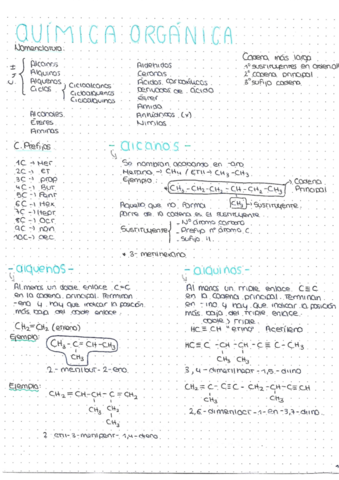 QUÍMICA ORGÁNICA
Nomenclatura:
Alcanos
Alquinos
Alquenos
Ciclos
Cicloalcanos
Cicloalquenos
Cicloalquinos
Alcoholes
Éteres
Aminas
Aldehídos
Cetonas
Ácidos carboxílicos
Derivados de ácido
Éster
Amida
Anhídridos (v)
Nitrilos
Cadena más larga
1º sustituyentes en orden
2º cadena principal
3º sufijo cadena
C. Prefijos
1C → Met
2C → ET
3C → prop
4C → But
5C → Pent
6C → Hex
7C → Hept
8C → Oct
9C → non
10C → dec.
- alcanos -
Se nombran acabando en -ano
Metano → CH4 / ETII → CH3-CH3
Ejemplo:
CH3-CH2-CH2-CH-CH2-CH3
Cadena
Principal
CH3 → Sustituyente.
Aquello que no forma
parte de la cadena es el sustituyente
Sustituyente
- Nº átomo carbono
- Prefijo nº átomo C.
- Sufijo il.
* 3-metilhexano
- alquenos -
Al menos un doble enlace C=C
en la cadena principal. Terminan
-eno y hay que indicar la posición
más baja del doble enlace.
CH2=CH2 (eteno)
Ejemplo:
CH3-C=CH-CH3
CH3
2-metilbut-2-eno.
Ejemplo:
CH2=CH-CH-C=CH2
CH3 CH2
CH3
2 etil-3-metilpent-1,4-dieno
- alquinos -
Al menos un triple enlace C≡C
en la cadena principal. Terminan
en -ino y hay que indicar la posición
más baja del triple enlace.
doble y triple.
HC≡CH "etino" Acetileno
HC≡C-CH-CH-C≡C-CH3
CH3 CH3
3,4-dimetilhept-1,5-diino
CH3=C-C≡C-CH2-CH-C≡CH
CH3
CH3
2,6-dimetiloct-1-en-3,7-diino.